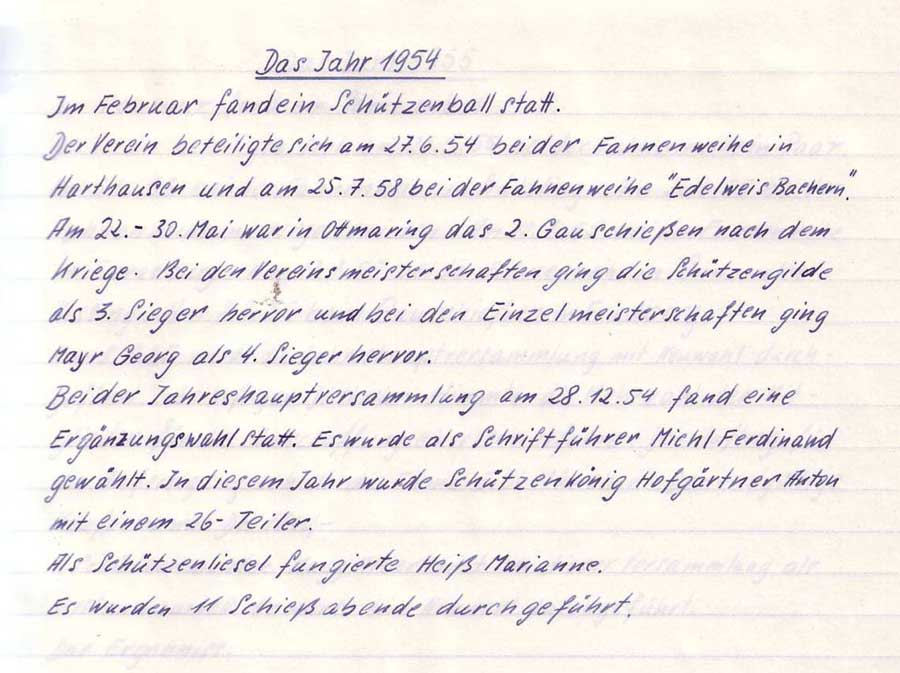 Das Jahr 1954
Im Februar fand ein Schützenball statt.
Der Verein beteiligte sich am 27.6.54 bei der Fannenweihe in
Harthausen und am 25.7.58 bei der Fahnenweihe "Edelweis Bachern".
Am 22.- 30. Mai war in Ottmaring das 2. Gauschießen nach dem
Kriege. Bei den Vereinsmeisterschaften ging die Schützengilde
als 3. Sieger hervor und bei den Einzelmeisterschaften ging
Mayr Georg als 4. Sieger hervor.
Bei der Jahreshauptversammlung am 28.12.54 fand eine
Ergänzungswahl statt. Es wurde als Schriftführer Michl Ferdinand
gewählt. In diesem Jahr wurde Schützenkönig Hofgärtner Anton
mit einem 26- Teiler.
Als Schützenliesel fungierte Heiß Marianne.
Es wurden 11 Schießabende durchgeführt.